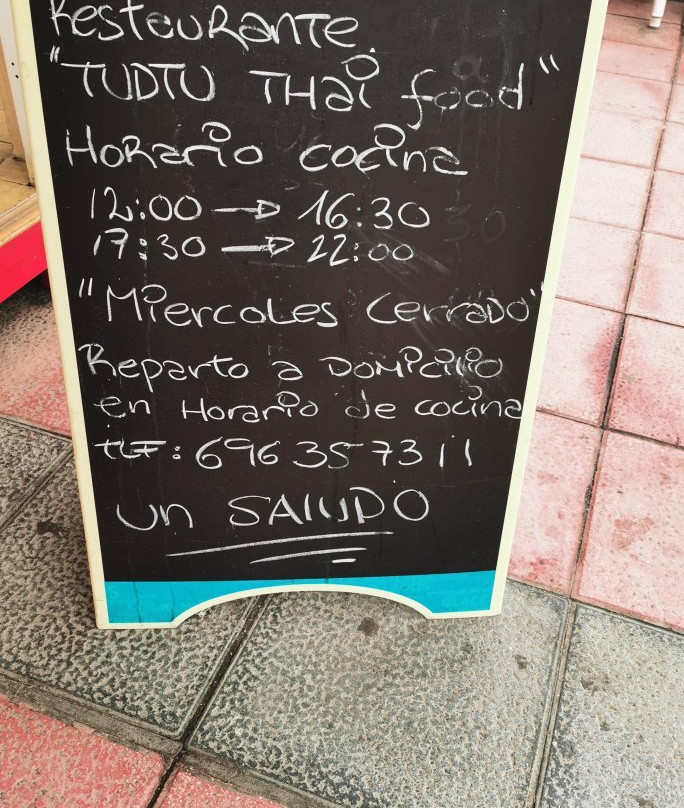 Restaurante.
"TUDTU THai food"
Horario cocina
12:00 → 16:30
17:30 → 22:00
"Miercoles Cerrado"
Reparto a Domicilio
en Horario de cocina
TLF: 696 35 73 11
un SALUDO